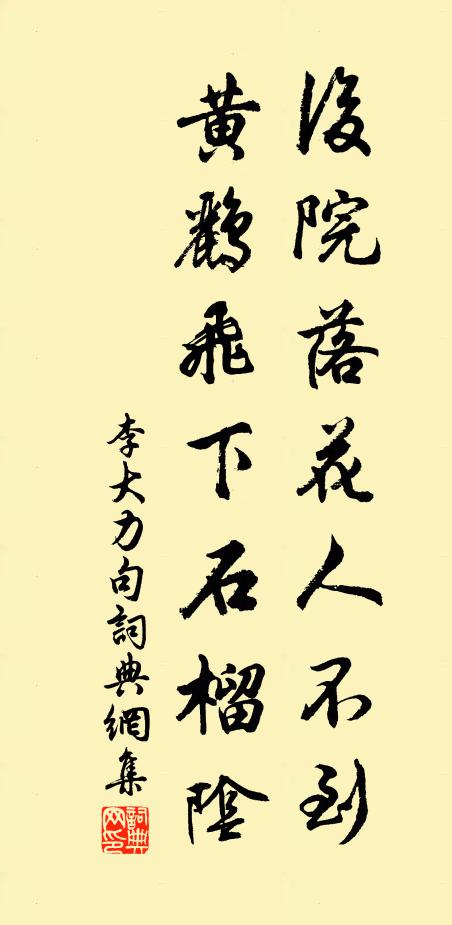 後院落花人不到
黃鸝飛下石榴陰
李大力句詞典網集
詞典
网印